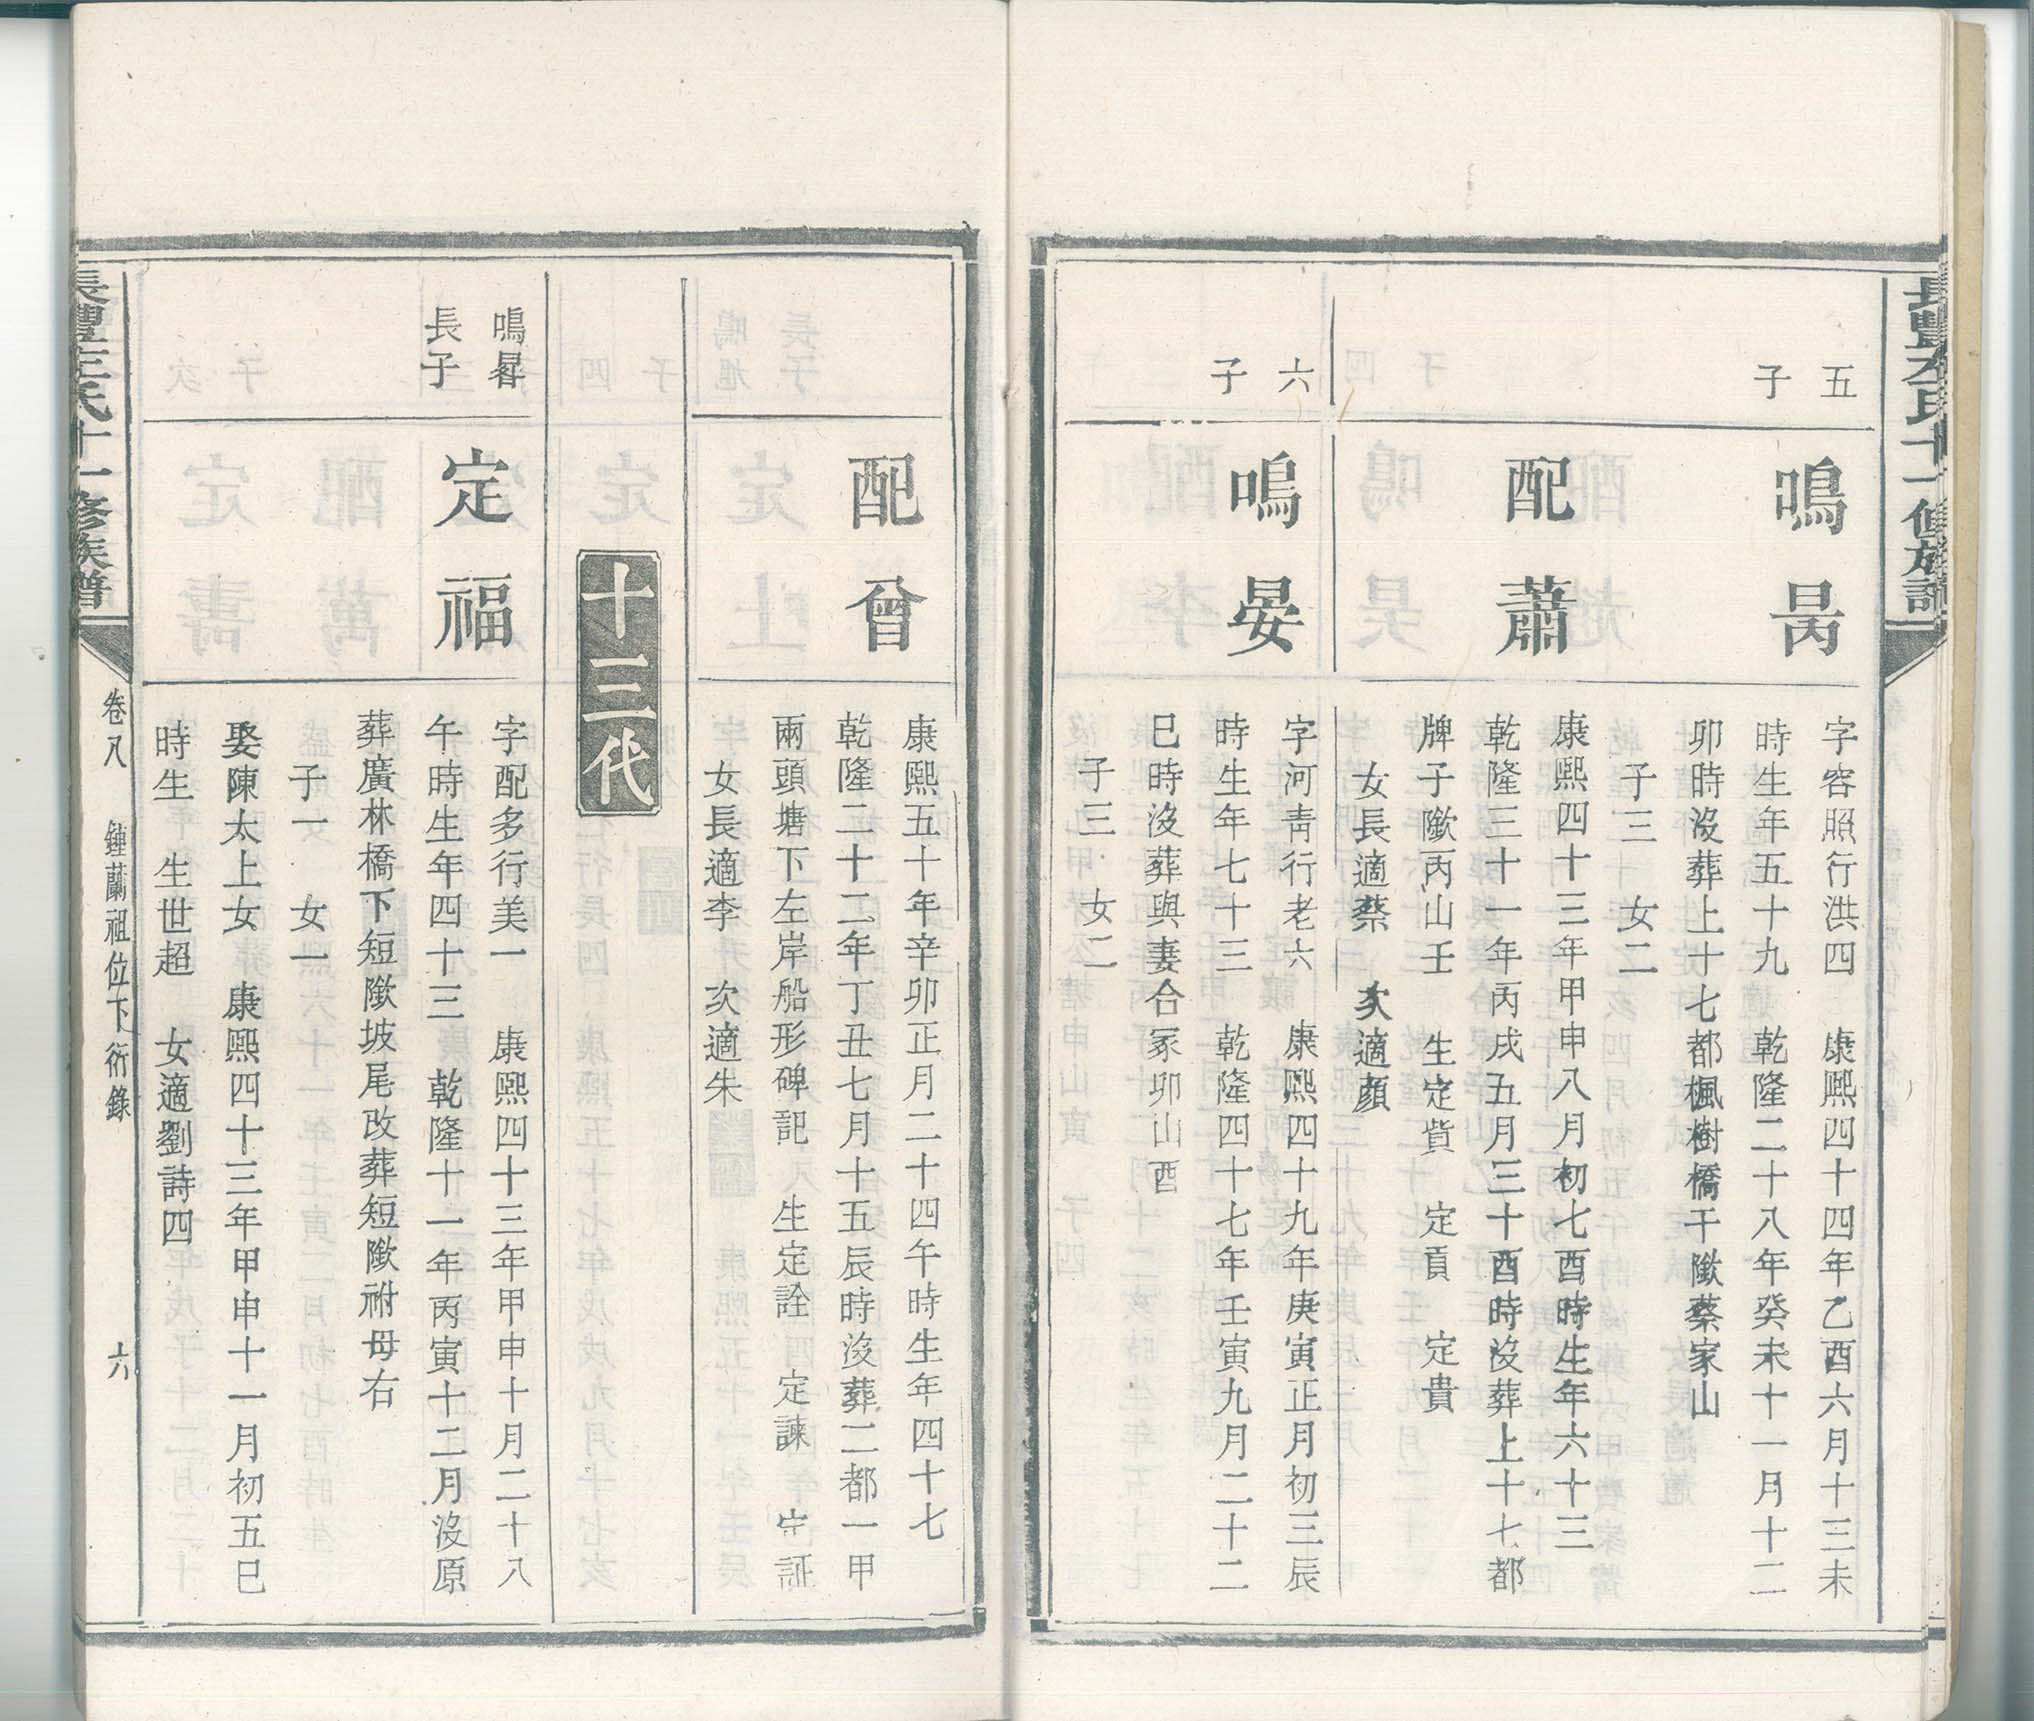 五
子
鳴昺
字容照行洪四　康熙四十四年乙酉六月十三未
時生年五十九　乾隆二十八年癸未十一月十二
卯時沒葬上十七都楓樹橋干㘰蔡家山
子三　女二
配蕭
康熙四十三年甲申八月初七酉時生年六十三
乾隆三十一年丙戌五月三十酉時沒葬上十七都
牌子㘰丙山壬　生定貲　定貢　定貴
女長適蔡　次適顏
六
子
鳴晏
字河青行老六　康熙四十九年庚寅正月初三辰
時生年七十三　乾隆四十七年壬寅九月二十二
巳時沒葬與妻合冢卯山酉
子三　女二
配曾
康熙五十年辛卯正月二十四午時生年四十七
乾隆二十二年丁丑七月十五辰時沒葬二都一甲
兩頭塘下左岸船形碑記　生定詮　定諫　定証
女長適李　次適朱
十三代
鳴晷
長子
定福
字配多行美一　康熙四十三年甲申十月二十八
午時生年四十三　乾隆十一年丙寅十二月沒原
葬廣林橋下短㘰坡尾改葬短㘰祔母右
子一　女一
娶陳太上女　康熙四十三年甲申十一月初五巳
時生　生世超　女適劉詩四
左氏十一修族譜
卷八　鍾蘭祖位下衍錄　六